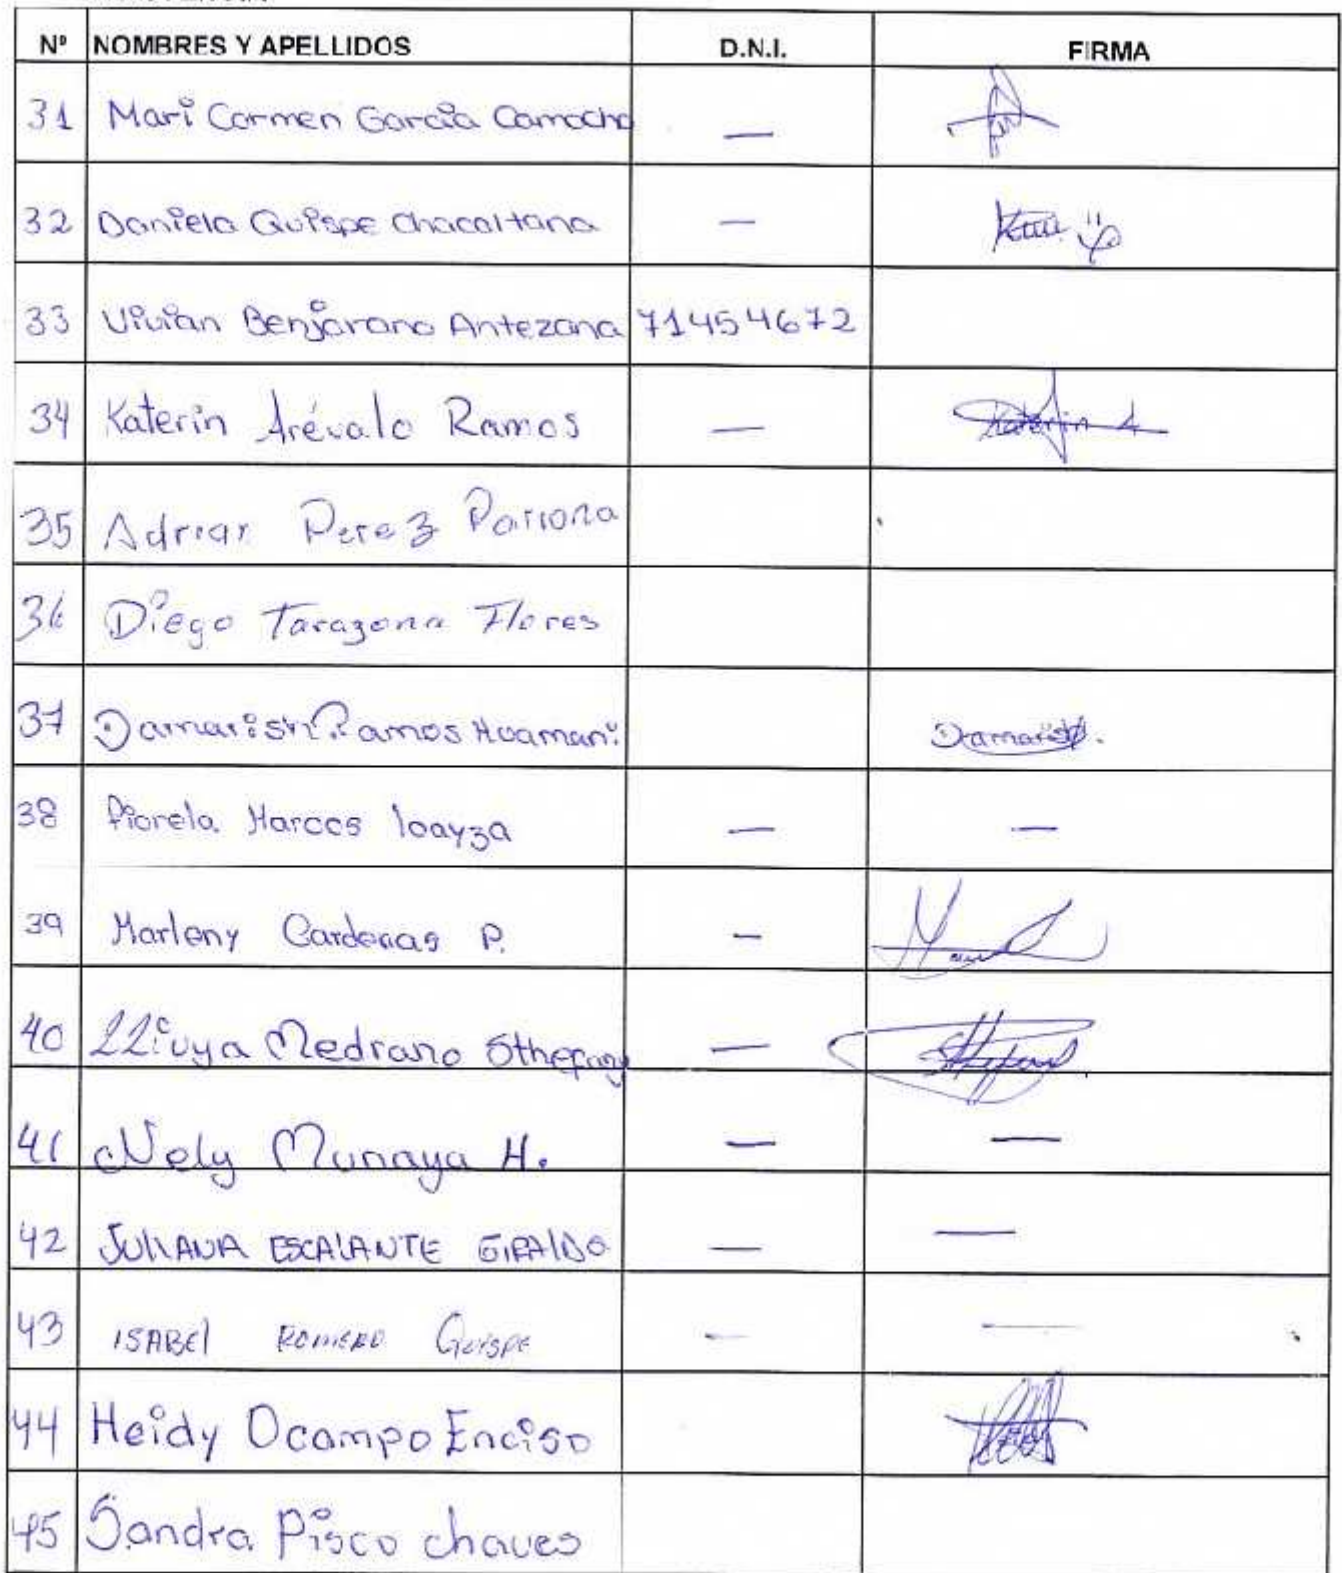 Nº NOMBRES Y APELLIDOS D.N.I. FIRMA
31 Mari Carmen García Camacho —
32 Daniela Quispe Chacaltana —
33 Vivian Benjarano Antezana 71454672
34 Katerin Arévalo Ramos — Katerin A
35 Adrian Perez Pariona
36 Diego Tarazona Flores
37 Damarish Ramos Huamani Damarish.
38 Fiorela Marcos loayza — —
39 Marleny Cardenas P. —
40 LLiuya Medrano Sthefany — Sthefany
41 Nely Munaya H. — —
42 JULIANA ESCALANTE GIRALDO — —
43 ISABEl ROMERO Quispe — —
44 Heidy Ocampo Enciso
45 Sandra Pisco chaves